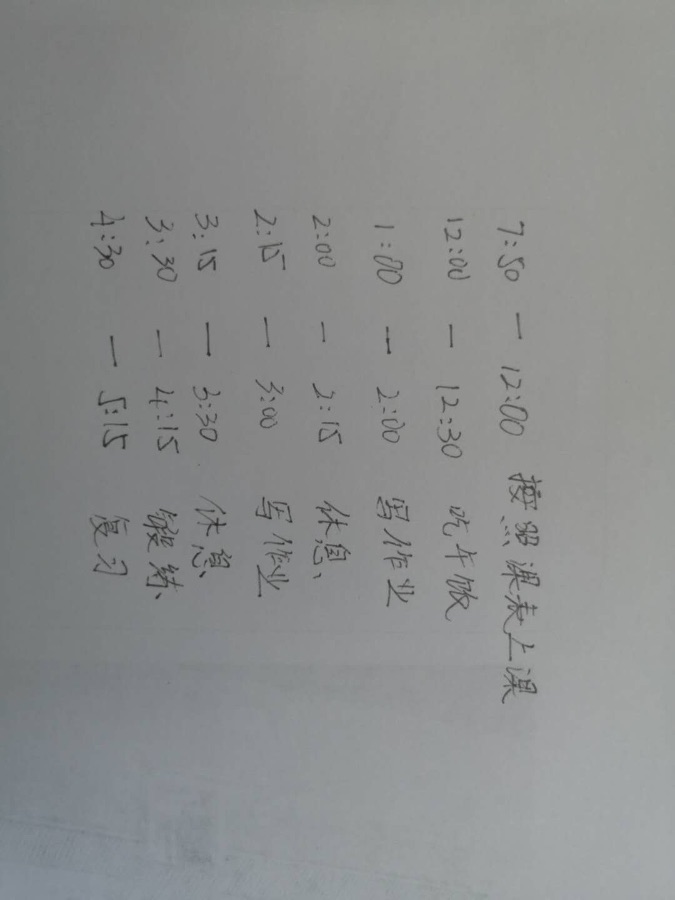 7:50 — 12:00 按照课表上课
12:00 — 12:30 吃午饭
1:00 — 2:00 写作业
2:00 — 2:15 休息
2:15 — 3:00 写作业
3:15 — 3:30 休息
3:30 — 4:15 锻练
4:30 — 5:15 复习